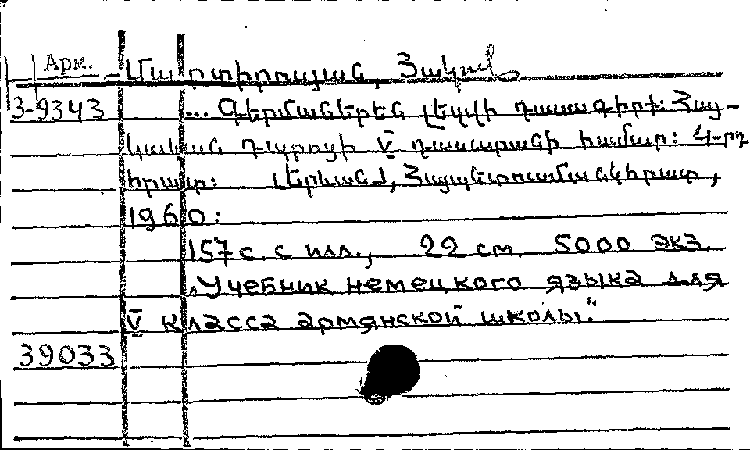 Арм.
Մարտիրոսյան, Հակոբ
3-9343
... Գերմաներեն լեզվի դասագիրք: Հայ-
կական դպրոցի V դասարանի համար: 4-րդ
հրատ: [Երևան], Հայպետուսմանկհրատ,
1960:
157 с. с илл., 22 см. 5000 экз.
„Учебник немецкого языка для
V класса армянской школы."
39033